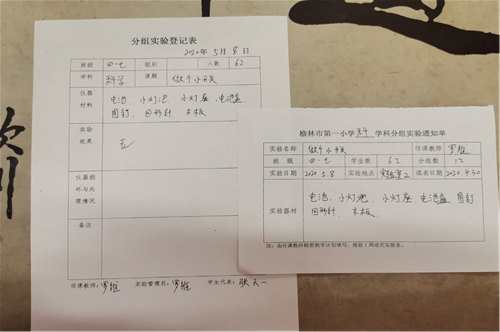 分组实验登记表
2020年5月8日
班级 四·七 组别 人数 62
学科 科学 课题 做个小开关
仪器材料 电池、小灯泡、小灯座、电池盒
图钉、回形针、木板
实验效果 无
仪器损坏与处理情况
备注
任课教师：罗维 实验管理员：罗维 学生代表：张天一
榆林市第一小学 科学 学科分组实验通知单
实验名称 做个小开关 任课教师 罗维
班级 四·七 学生数 62 分组数 12
实验日期 2020.5.8 实验地点 实验室2 填表日期 2020.4.30
实验器材 电池、小灯泡、小灯座、电池盒、图钉
回形针、木板
注：由任课教师根据教学计划填写，提前1周送交实验室。